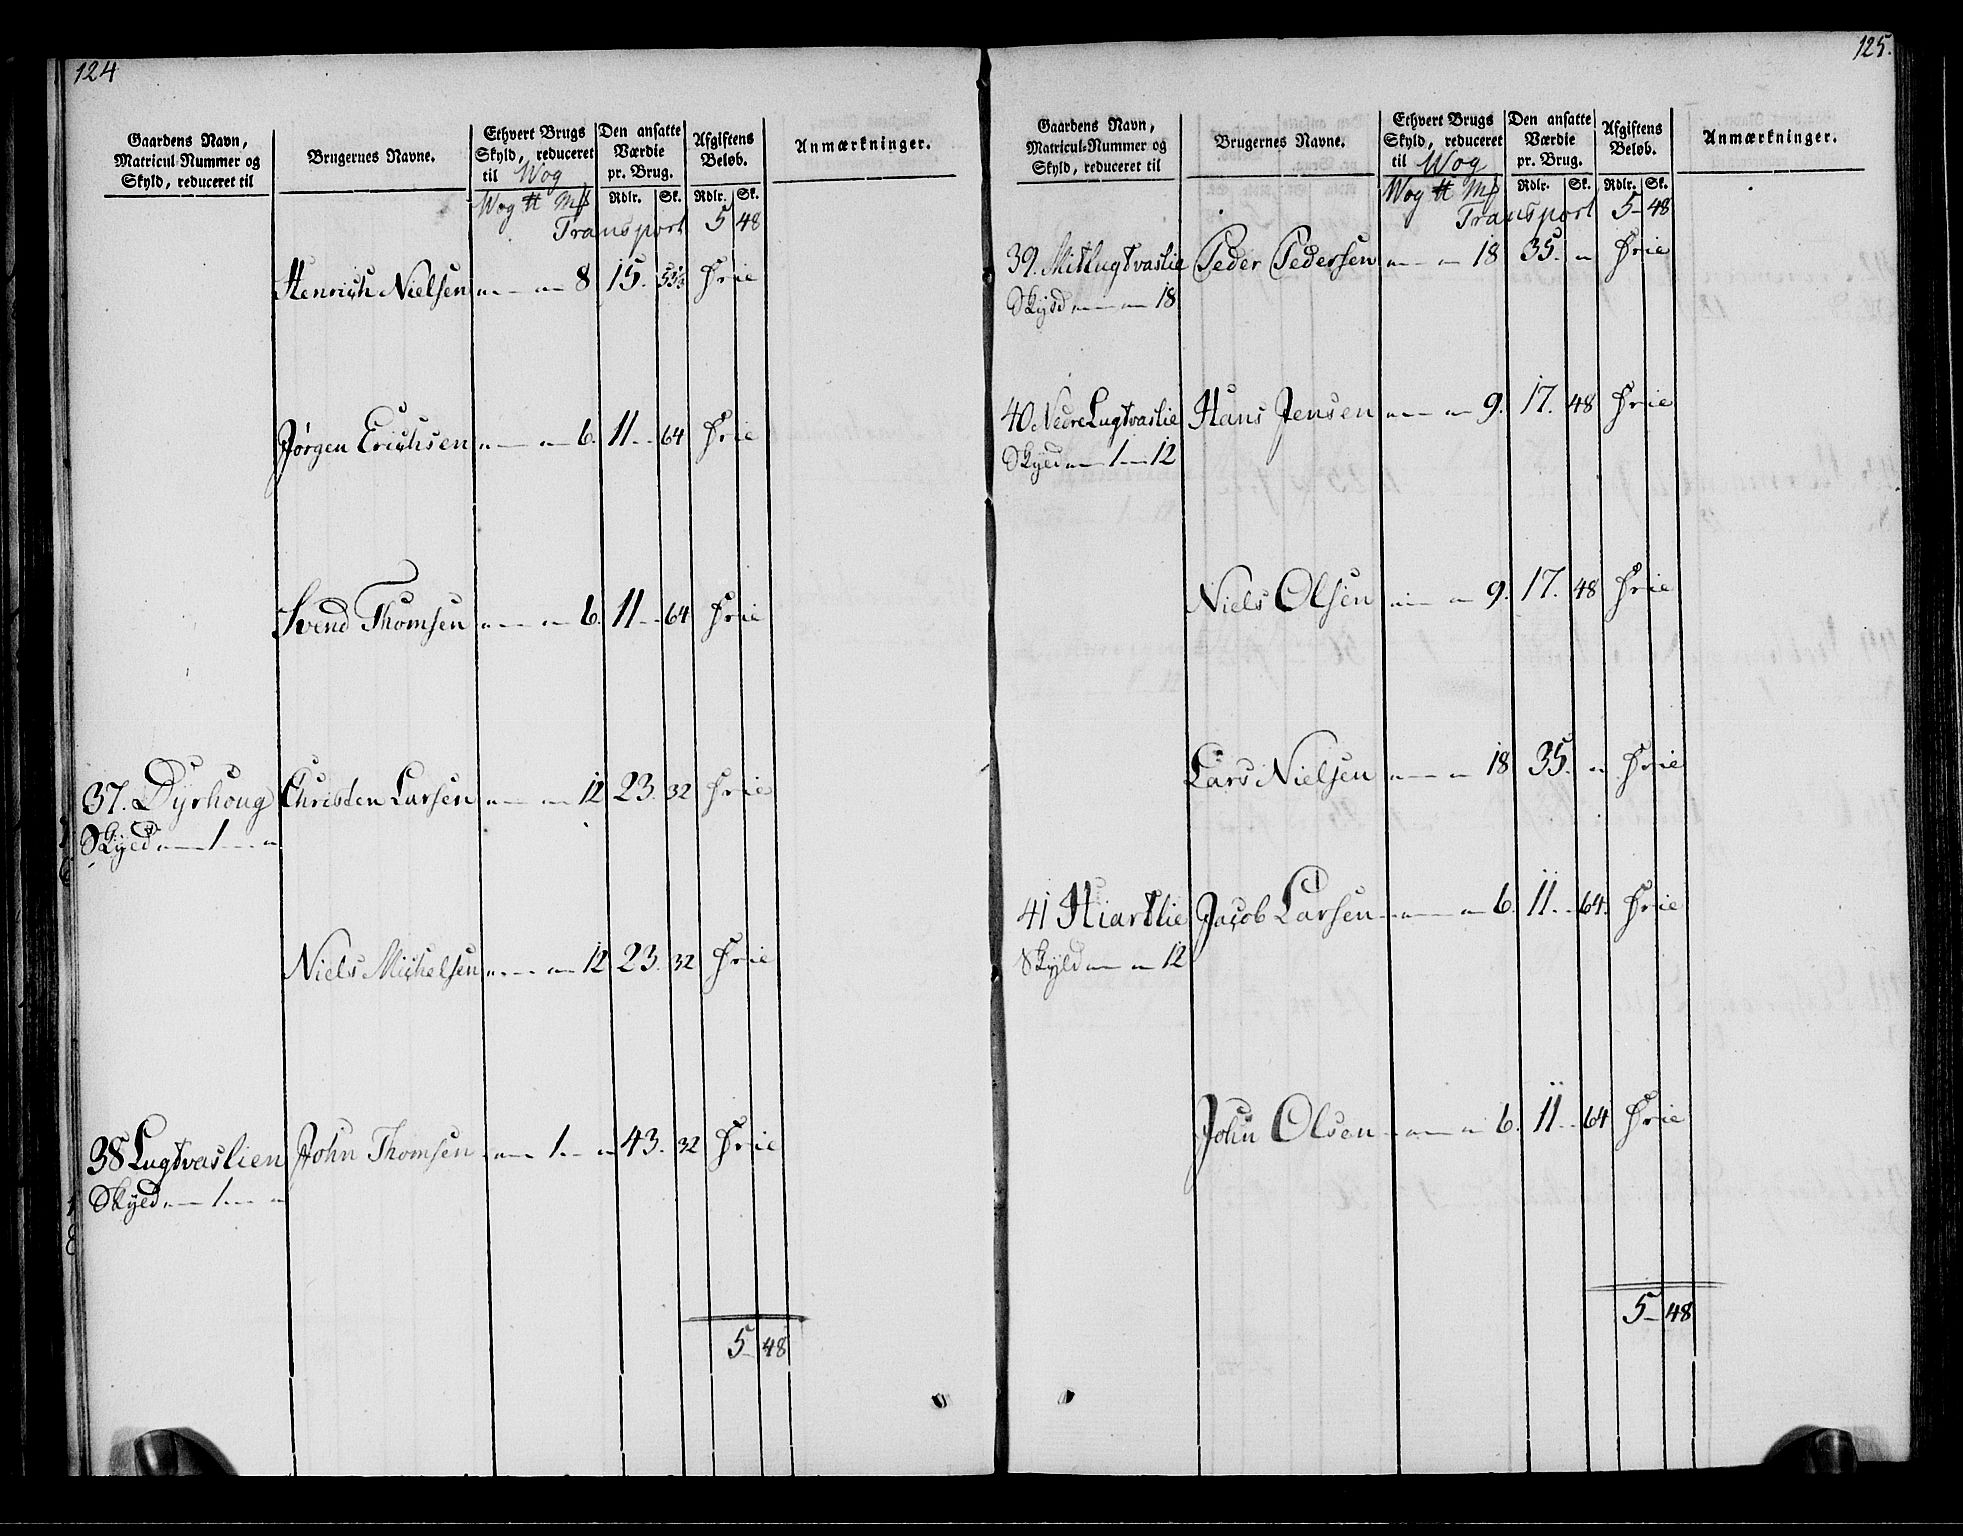 124
Gaardens Navn, Matricul-Nummer og Skyld, reduceret til | Brugernes Navne. | Ethvert Brugs Skyld, reduceret til Wog | Den ansatte Værdie pr. Brug. | Afgiftens Beløb. | Anmærkninger.
Wog ℔ Mß | Rdlr. | Sk. | Rdlr. | Sk.
Transport 5 48
Henrich Nielsen „ — „ 8 15. 53⅓ Frie
Jørgen Erichsen „ — „ 6. 11 „ 64 Frie
Svend Thomsen „ — „ 6. 11 „ 64 Frie
37. Dyrhoug Christen Larsen „ — „ 12 23. 32 Frie
Skyld „ — 1 — „
Niels Michelsen „ — „ 12 23. 32 Frie
38 Lugtvaslien John Thomsen „ — 1 — „ 43. 32 Frie
Skyld „ — 1 — „
5 48
125.
Gaardens Navn, Matricul-Nummer og Skyld, reduceret til | Brugernes Navne. | Ethvert Brugs Skyld, reduceret til Wog | Den ansatte Værdie pr. Brug. | Afgiftens Beløb. | Anmærkninger.
Wog ℔ Mß | Rdlr. | Sk. | Rdlr. | Sk.
Transport 5 — 48
39. Mitlugtvaslie Peder Pedersen „ — „ 18 35. „ Frie
Skyld „ — „ 18
40 Nedre Lugtvaslie Hans Jensen „ — „ 9. 17. 48 Frie
Skyld „ — 1 — 12
Niels Olsen „ — „ 9. 17. 48 Frie
Lars Nielsen „ — „ 18 35. „ Frie
41 Hiartlie Jacob Larsen „ — „ 6. 11 „ 64. Frie
Skyld „ — „ 12
John Olsen „ — „ 6. 11 „ 64 Frie
5 — 48